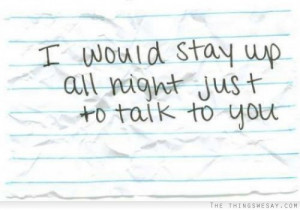 I would stay up
all night just
to talk to you
THETHINGSWESAY.COM